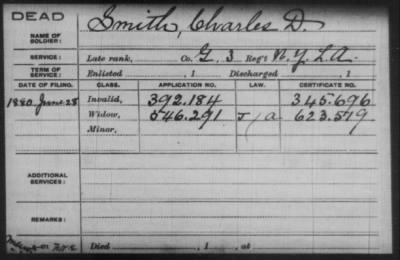 DEAD
NAME OF SOLDIER: Smith, Charles D.
SERVICE: Late rank, Co. G. 3 Reg't N.Y.L.A.
TERM OF SERVICE: Enlisted , 1 Discharged , 1
DATE OF FILING. CLASS. APPLICATION NO. LAW. CERTIFICATE NO.
1880 June 28 Invalid, 392.184 345.696
Widow, 546.291 623.579
Minor,
ADDITIONAL SERVICES:
REMARKS:
Died , 1 , at